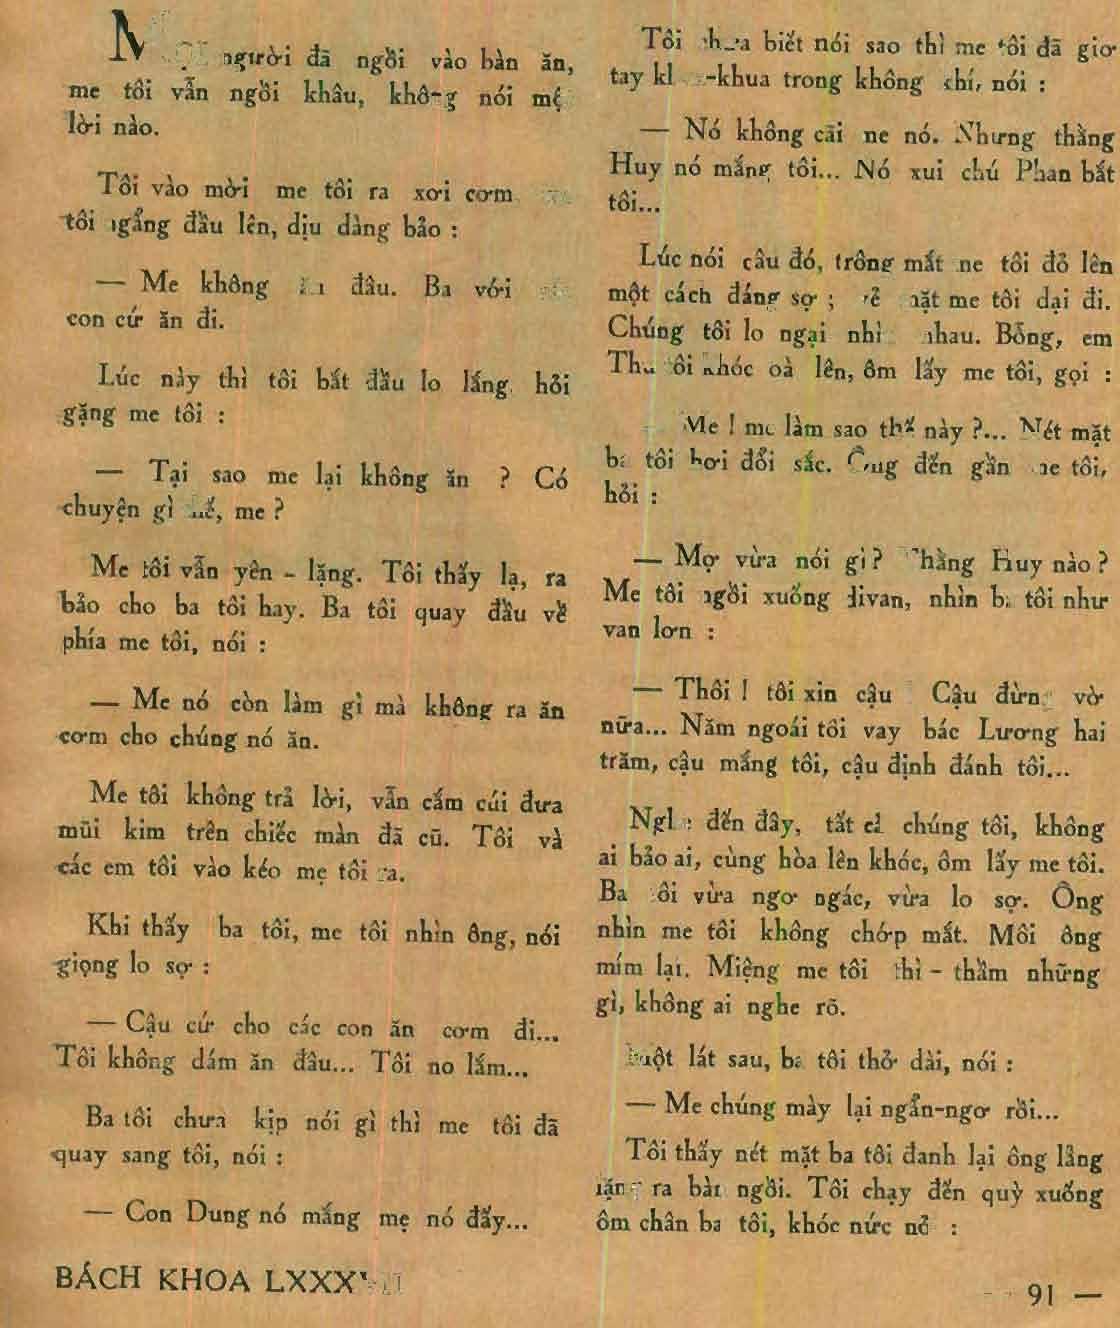 Mọi người đã ngồi vào bàn ăn,
me tôi vẫn ngồi khâu, không nói một
lời nào.
Tôi vào mời me tôi ra xơi cơm
tôi ngẩng đầu lên, dịu dàng bảo :
— Me không ăn đâu. Ba với các
con cứ ăn đi.
Lúc này thì tôi bắt đầu lo lắng, hỏi
gặng me tôi :
— Tại sao me lại không ăn ? Có
chuyện gì thế, me ?
Me tôi vẫn yên - lặng. Tôi thấy lạ, ra
bảo cho ba tôi hay. Ba tôi quay đầu về
phía me tôi, nói :
— Me nó còn làm gì mà không ra ăn
cơm cho chúng nó ăn.
Me tôi không trả lời, vẫn cắm cúi đưa
mũi kim trên chiếc màn đã cũ. Tôi và
các em tôi vào kéo mẹ tôi ra.
Khi thấy ba tôi, me tôi nhìn ông, nói
giọng lo sợ :
— Cậu cứ cho các con ăn cơm đi...
Tôi không dám ăn đâu... Tôi no lắm...
Ba tôi chưa kịp nói gì thì me tôi đã
quay sang tôi, nói :
— Con Dung nó mắng mẹ nó đấy...
BÁCH KHOA
Tôi chưa biết nói sao thì me tôi đã giơ
tay khua-khua trong không khí, nói :
— Nó không cãi me nó. Nhưng thằng
Huy nó mắng tôi... Nó xui chú Phan bắt
tôi...
Lúc nói câu đó, trông mắt me tôi đỏ lên
một cách đáng sợ ; vẻ mặt me tôi dại đi.
Chúng tôi lo ngại nhìn nhau. Bỗng, em
Thu tôi khóc oà lên, ôm lấy me tôi, gọi :
— Me ! me làm sao thế này ?... Nét mặt
ba tôi hơi đổi sắc. Ông đến gần me tôi,
hỏi :
— Mợ vừa nói gì ? Thằng Huy nào ?
Me tôi ngồi xuống divan, nhìn ba tôi như
van lơn :
— Thôi ! tôi xin cậu ! Cậu đừng vờ
nữa... Năm ngoái tôi vay bác Lương hai
trăm, cậu mắng tôi, cậu định đánh tôi...
Nghe đến đây, tất cả chúng tôi, không
ai bảo ai, cùng hòa lên khóc, ôm lấy me tôi.
Ba tôi vừa ngơ ngác, vừa lo sợ. Ông
nhìn me tôi không chớp mắt. Môi ông
mím lại. Miệng me tôi thì - thầm những
gì, không ai nghe rõ.
Một lát sau, ba tôi thở dài, nói :
— Me chúng mày lại ngẩn-ngơ rồi...
Tôi thấy nét mặt ba tôi đanh lại ông lẳng
lặng ra bàn ngồi. Tôi chạy đến quỳ xuống
ôm chân ba tôi, khóc nức nở :
91 —